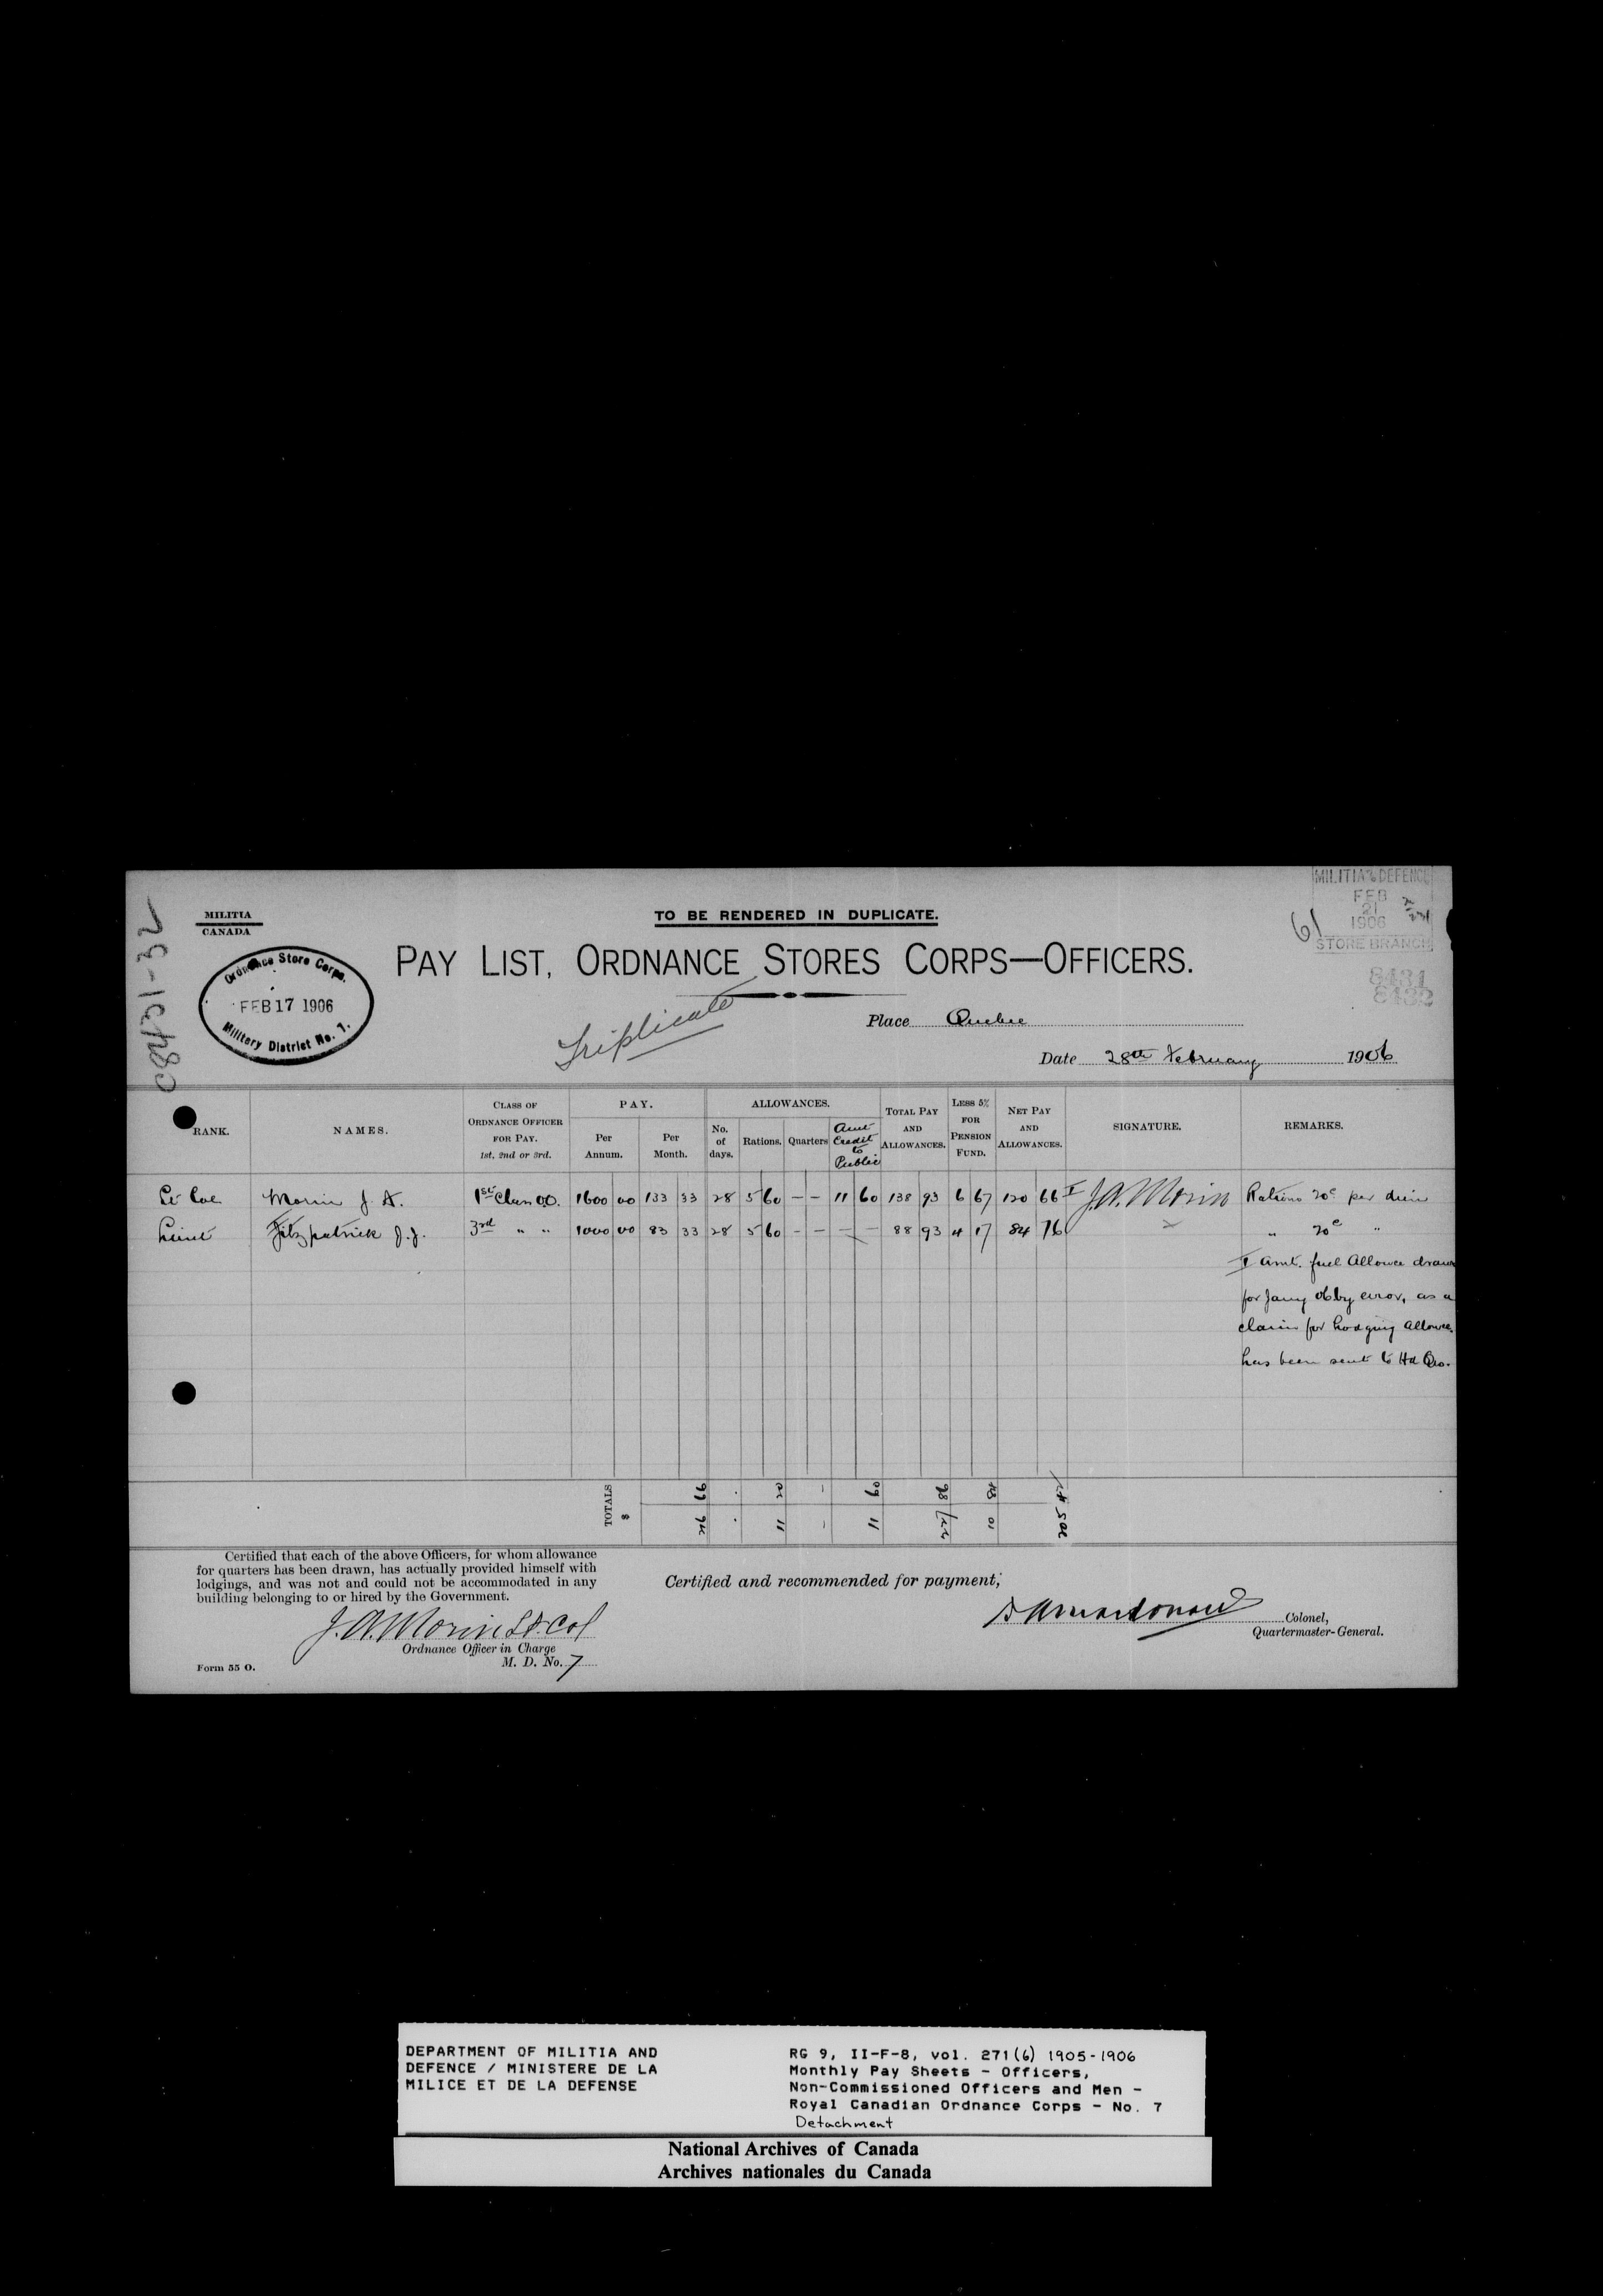 MILITIA
CANADA
TO BE RENDERED IN DUPLICATE.
MILITIA & DEFENCE
FEB
21
1906
STORE BRANCH
61
8431
8432
C8431-32
Ordnance Store Corps.
FEB 17 1906
Military District No. 7.
PAY LIST, ORDNANCE STORES CORPS—OFFICERS.
Triplicate
Place Quebec
Date 28th February 1906
RANK.
NAMES.
CLASS OF ORDNANCE OFFICER FOR PAY. 1st, 2nd or 3rd.
PAY.
Per Annum.
Per Month.
ALLOWANCES.
No. of days.
Rations.
Quarters
Amt Credit to Public
TOTAL PAY AND ALLOWANCES.
LESS 5% FOR PENSION FUND.
NET PAY AND ALLOWANCES.
SIGNATURE.
REMARKS.
Lt Col Morin J. A. 1st Class O.O. 1600 00 133 33 28 5 60 – – 11 60 138 93 6 67 120 66 J.A. Morin Rations 20c per diem
Lieut Fitzpatrick J. J. 3rd " " 1000 00 83 33 28 5 60 – – – – 88 93 4 17 84 76 " 20c "
Amt. fuel Allowce drawn
for Jany 06 by error, as a
claim for Lodging Allowce
has been sent to Hd Qrs.
TOTALS $
Certified that each of the above Officers, for whom allowance
for quarters has been drawn, has actually provided himself with
lodgings, and was not and could not be accommodated in any
building belonging to or hired by the Government.
J.A. Morin Lt. Col
Ordnance Officer in Charge
M. D. No. 7
Form 55 O.
Certified and recommended for payment,
Colonel,
Quartermaster-General.
DEPARTMENT OF MILITIA AND
DEFENCE / MINISTERE DE LA
MILICE ET DE LA DEFENSE
RG 9, II-F-8, vol. 271(6) 1905-1906
Monthly Pay Sheets - Officers,
Non-Commissioned Officers and Men -
Royal Canadian Ordnance Corps - No. 7
Detachment
National Archives of Canada
Archives nationales du Canada